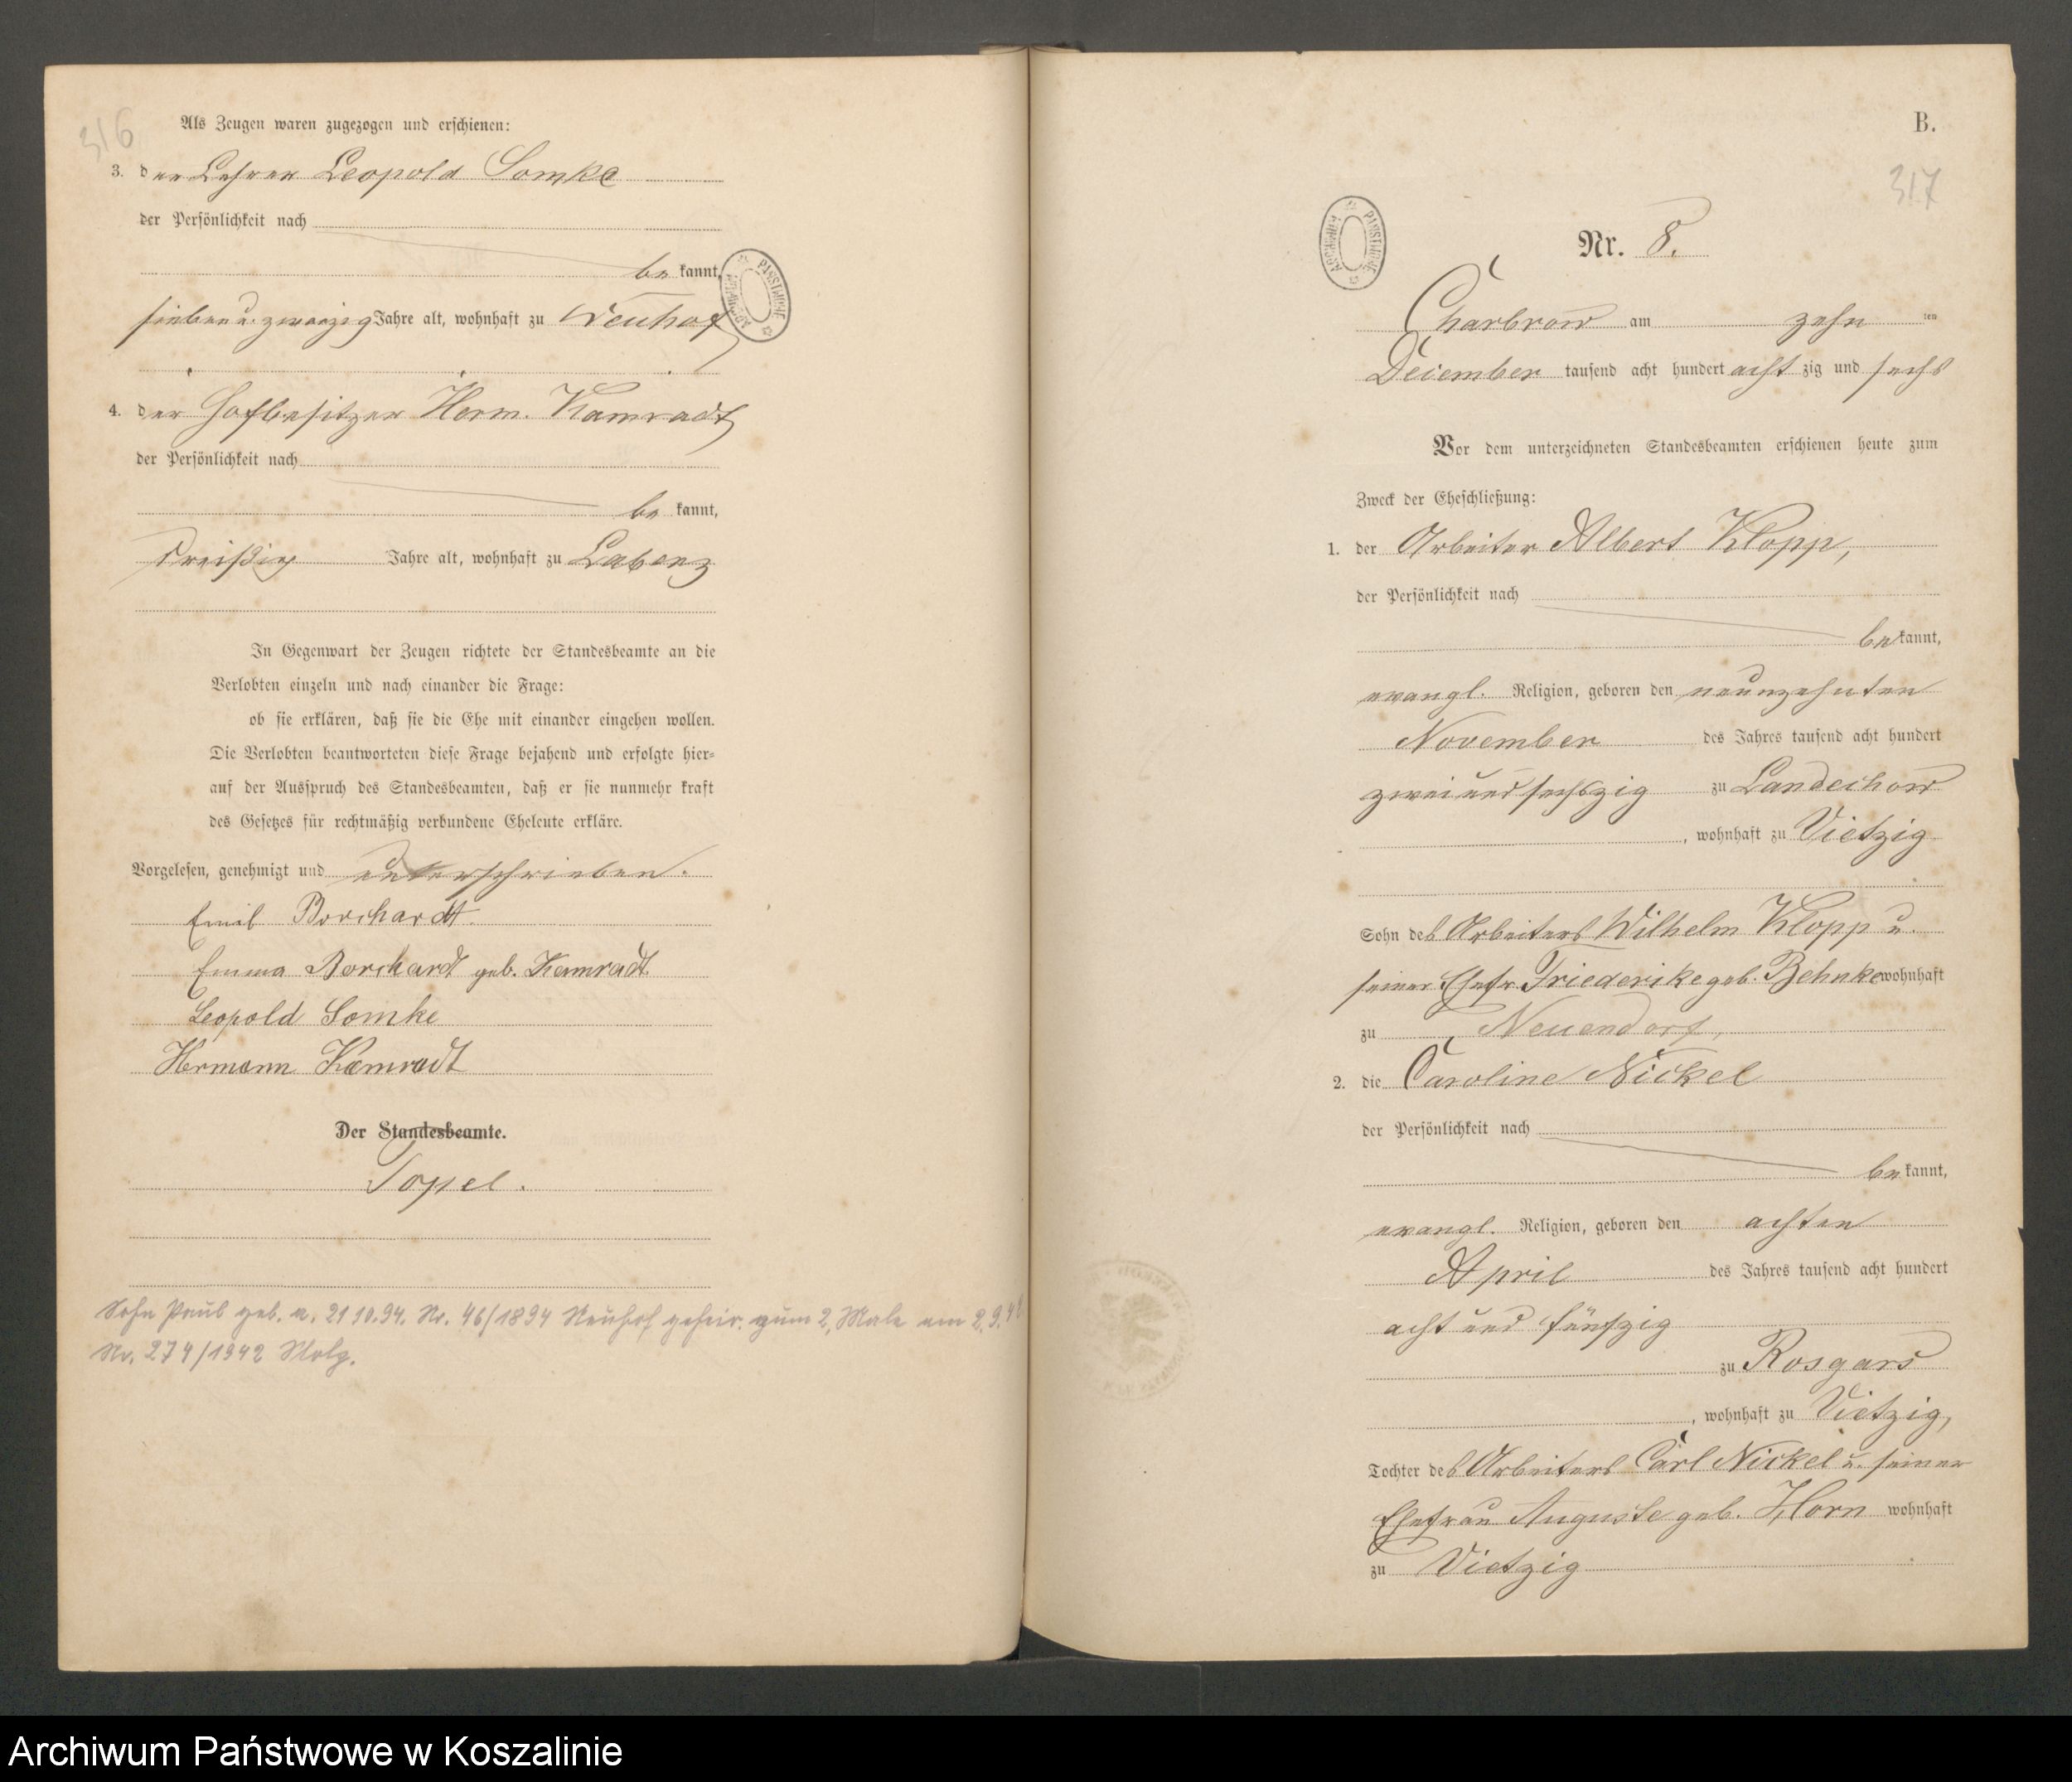 316
Als Zeugen waren zugezogen und erschienen:
3. der Lehrer Leopold Somke
der Persönlichkeit nach
be kannt,
sieben u. zwanzig Jahre alt, wohnhaft zu Neuhof
4. der Hofbesitzer Herm. Kamradt
der Persönlichkeit nach
be kannt,
dreißig Jahre alt, wohnhaft zu Labenz
In Gegenwart der Zeugen richtete der Standesbeamte an die
Verlobten einzeln und nach einander die Frage:
ob sie erklären, daß sie die Ehe mit einander eingehen wollen.
Die Verlobten beantworteten diese Frage bejahend und erfolgte hier-
auf der Ausspruch des Standesbeamten, daß er sie nunmehr kraft
des Gesetzes für rechtmäßig verbundene Eheleute erkläre.
Vorgelesen, genehmigt und unterschrieben.
Emil Borchardt.
Emma Borchardt geb. Kamradt
Leopold Somke
Hermann Kamradt
Der Standesbeamte.
Topel.
Sohn Paul geb. a. 21 10.94. Nr. 46/1894 Neuhof geheir. zum 2. Male am 2.9.4
Nr. 274/1942 Stolp.
B.
317
ARCHIWUM PAŃSTWOWE
Nr. 8.
Charbrow am zehn ten
December tausend acht hundert acht zig und sechs
Vor dem unterzeichneten Standesbeamten erschienen heute zum
Zweck der Eheschließung:
1. der Arbeiter Albert Klopp,
der Persönlichkeit nach
be kannt,
evangl. Religion, geboren den neunzehnten
November des Jahres tausend acht hundert
zwei und sechszig zu Landechow
, wohnhaft zu Vietzig
Sohn des Arbeiters Wilhelm Klopp u.
seiner Ehefr. Friederike geb. Behnke wohnhaft
zu Neuendorf,
2. die Caroline Nickel
der Persönlichkeit nach
be kannt,
evangl. Religion, geboren den achten
April des Jahres tausend acht hundert
acht und fünfzig
zu Rosgars
, wohnhaft zu Vietzig,
Tochter des Arbeiters Carl Nickel u. seiner
Ehefrau Auguste geb. Horn wohnhaft
zu Vietzig
Archiwum Państwowe w Koszalinie